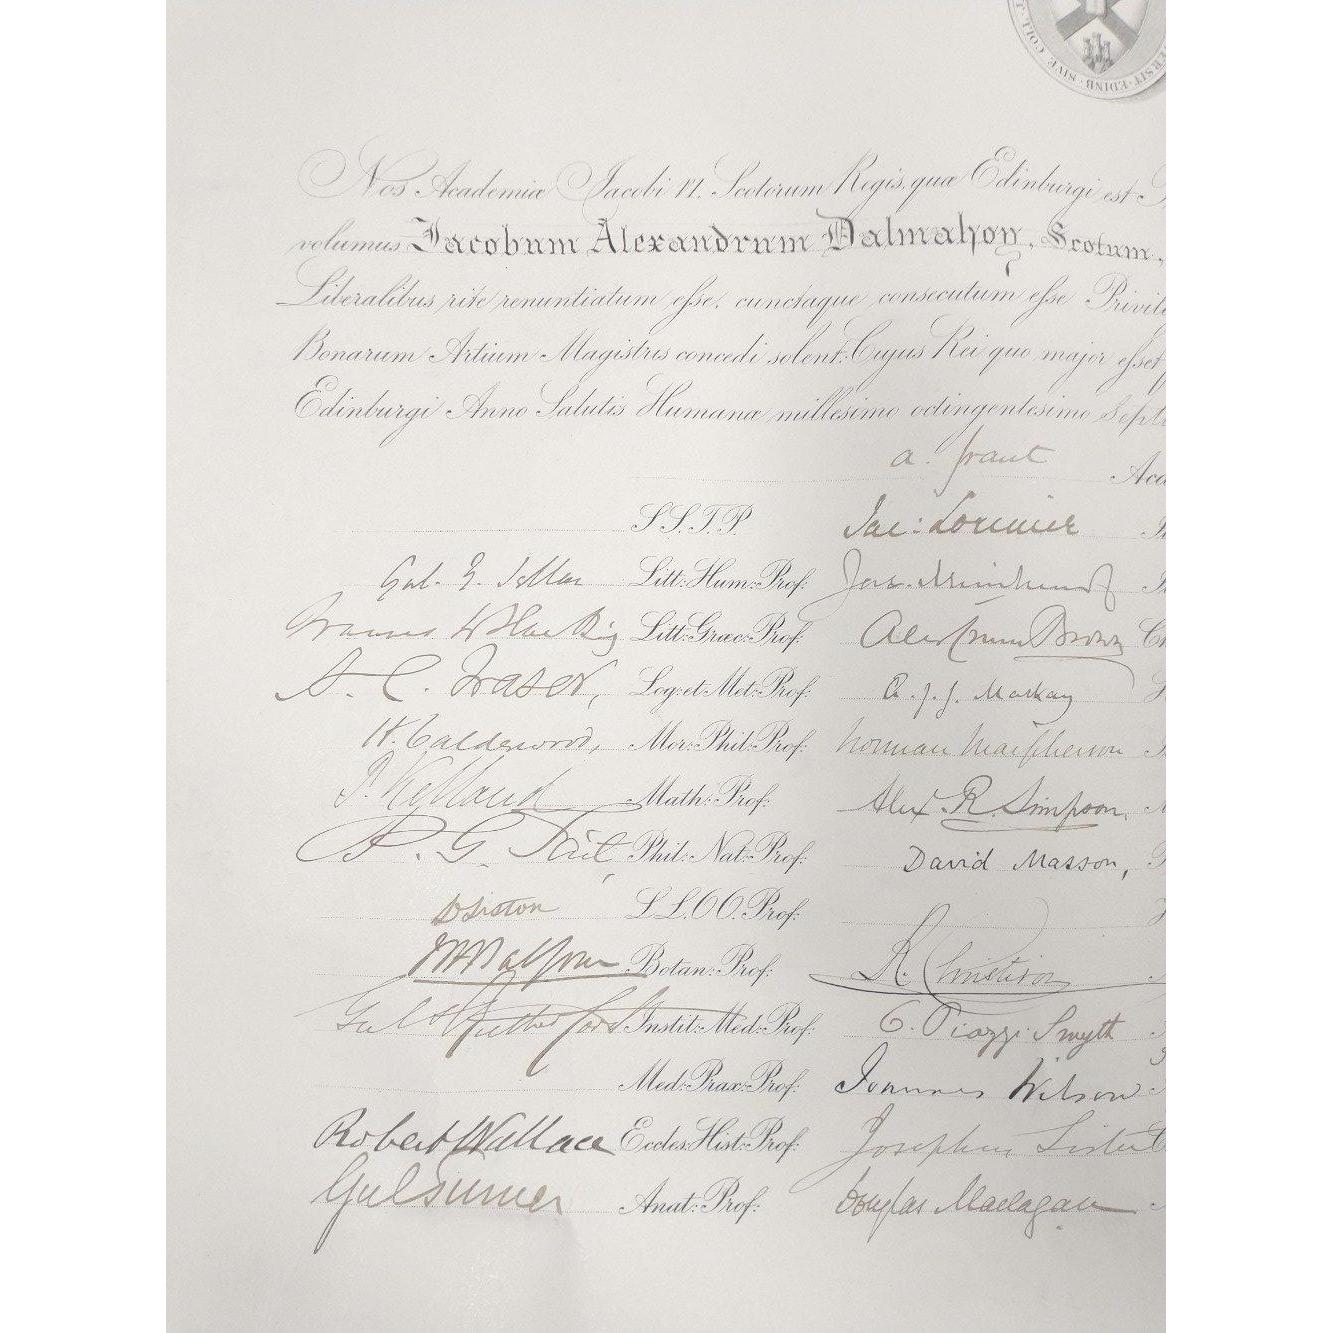 T. COLL. SIVE EDINB. ERSIT.
Nos Academia Jacobi VI. Scotorum Regis, quæ Edinburgi est
volumus Jacobum Alexandrum Dalmahoy, Scotum,
Liberalibus rite renuntiatum esse, cunctaque consecutum esse Privile
Bonarum Artium Magistris concedi solent. Cujus Rei quo major esset
Edinburgi Anno Salutis Humanæ millesimo octingentesimo Septu
A. Grant Aca
S.S.T.P. Jac: Lorimer
Gul. Y. Sellar Litt: Hum: Prof:
Litt: Græc: Prof: Alex Crum Brown
A. C. Fraser, Log: et Met: Prof: Æ. J. G. Mackay
H. Calderwood, Mor: Phil: Prof: Norman Macpherson
P. Kelland Math: Prof: Alex. R. Simpson,
P. G. Tait, Phil: Nat: Prof: David Masson,
D Liston L L. O O. Prof:
JH Balfour Botan: Prof: R. Christison
Gul Rutherford Instit: Med: Prof: C. Piazzi Smyth
Med: Prax: Prof: Joannes Wilson
Robert Wallace Eccles: Hist: Prof: Josephus Lister
Gul Turner Anat: Prof: Douglas Maclagan